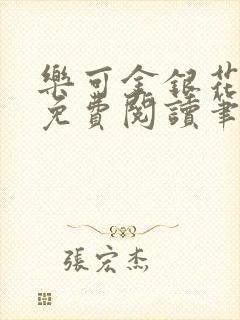 樂可金銀花
免費閱讀筆
張宏杰